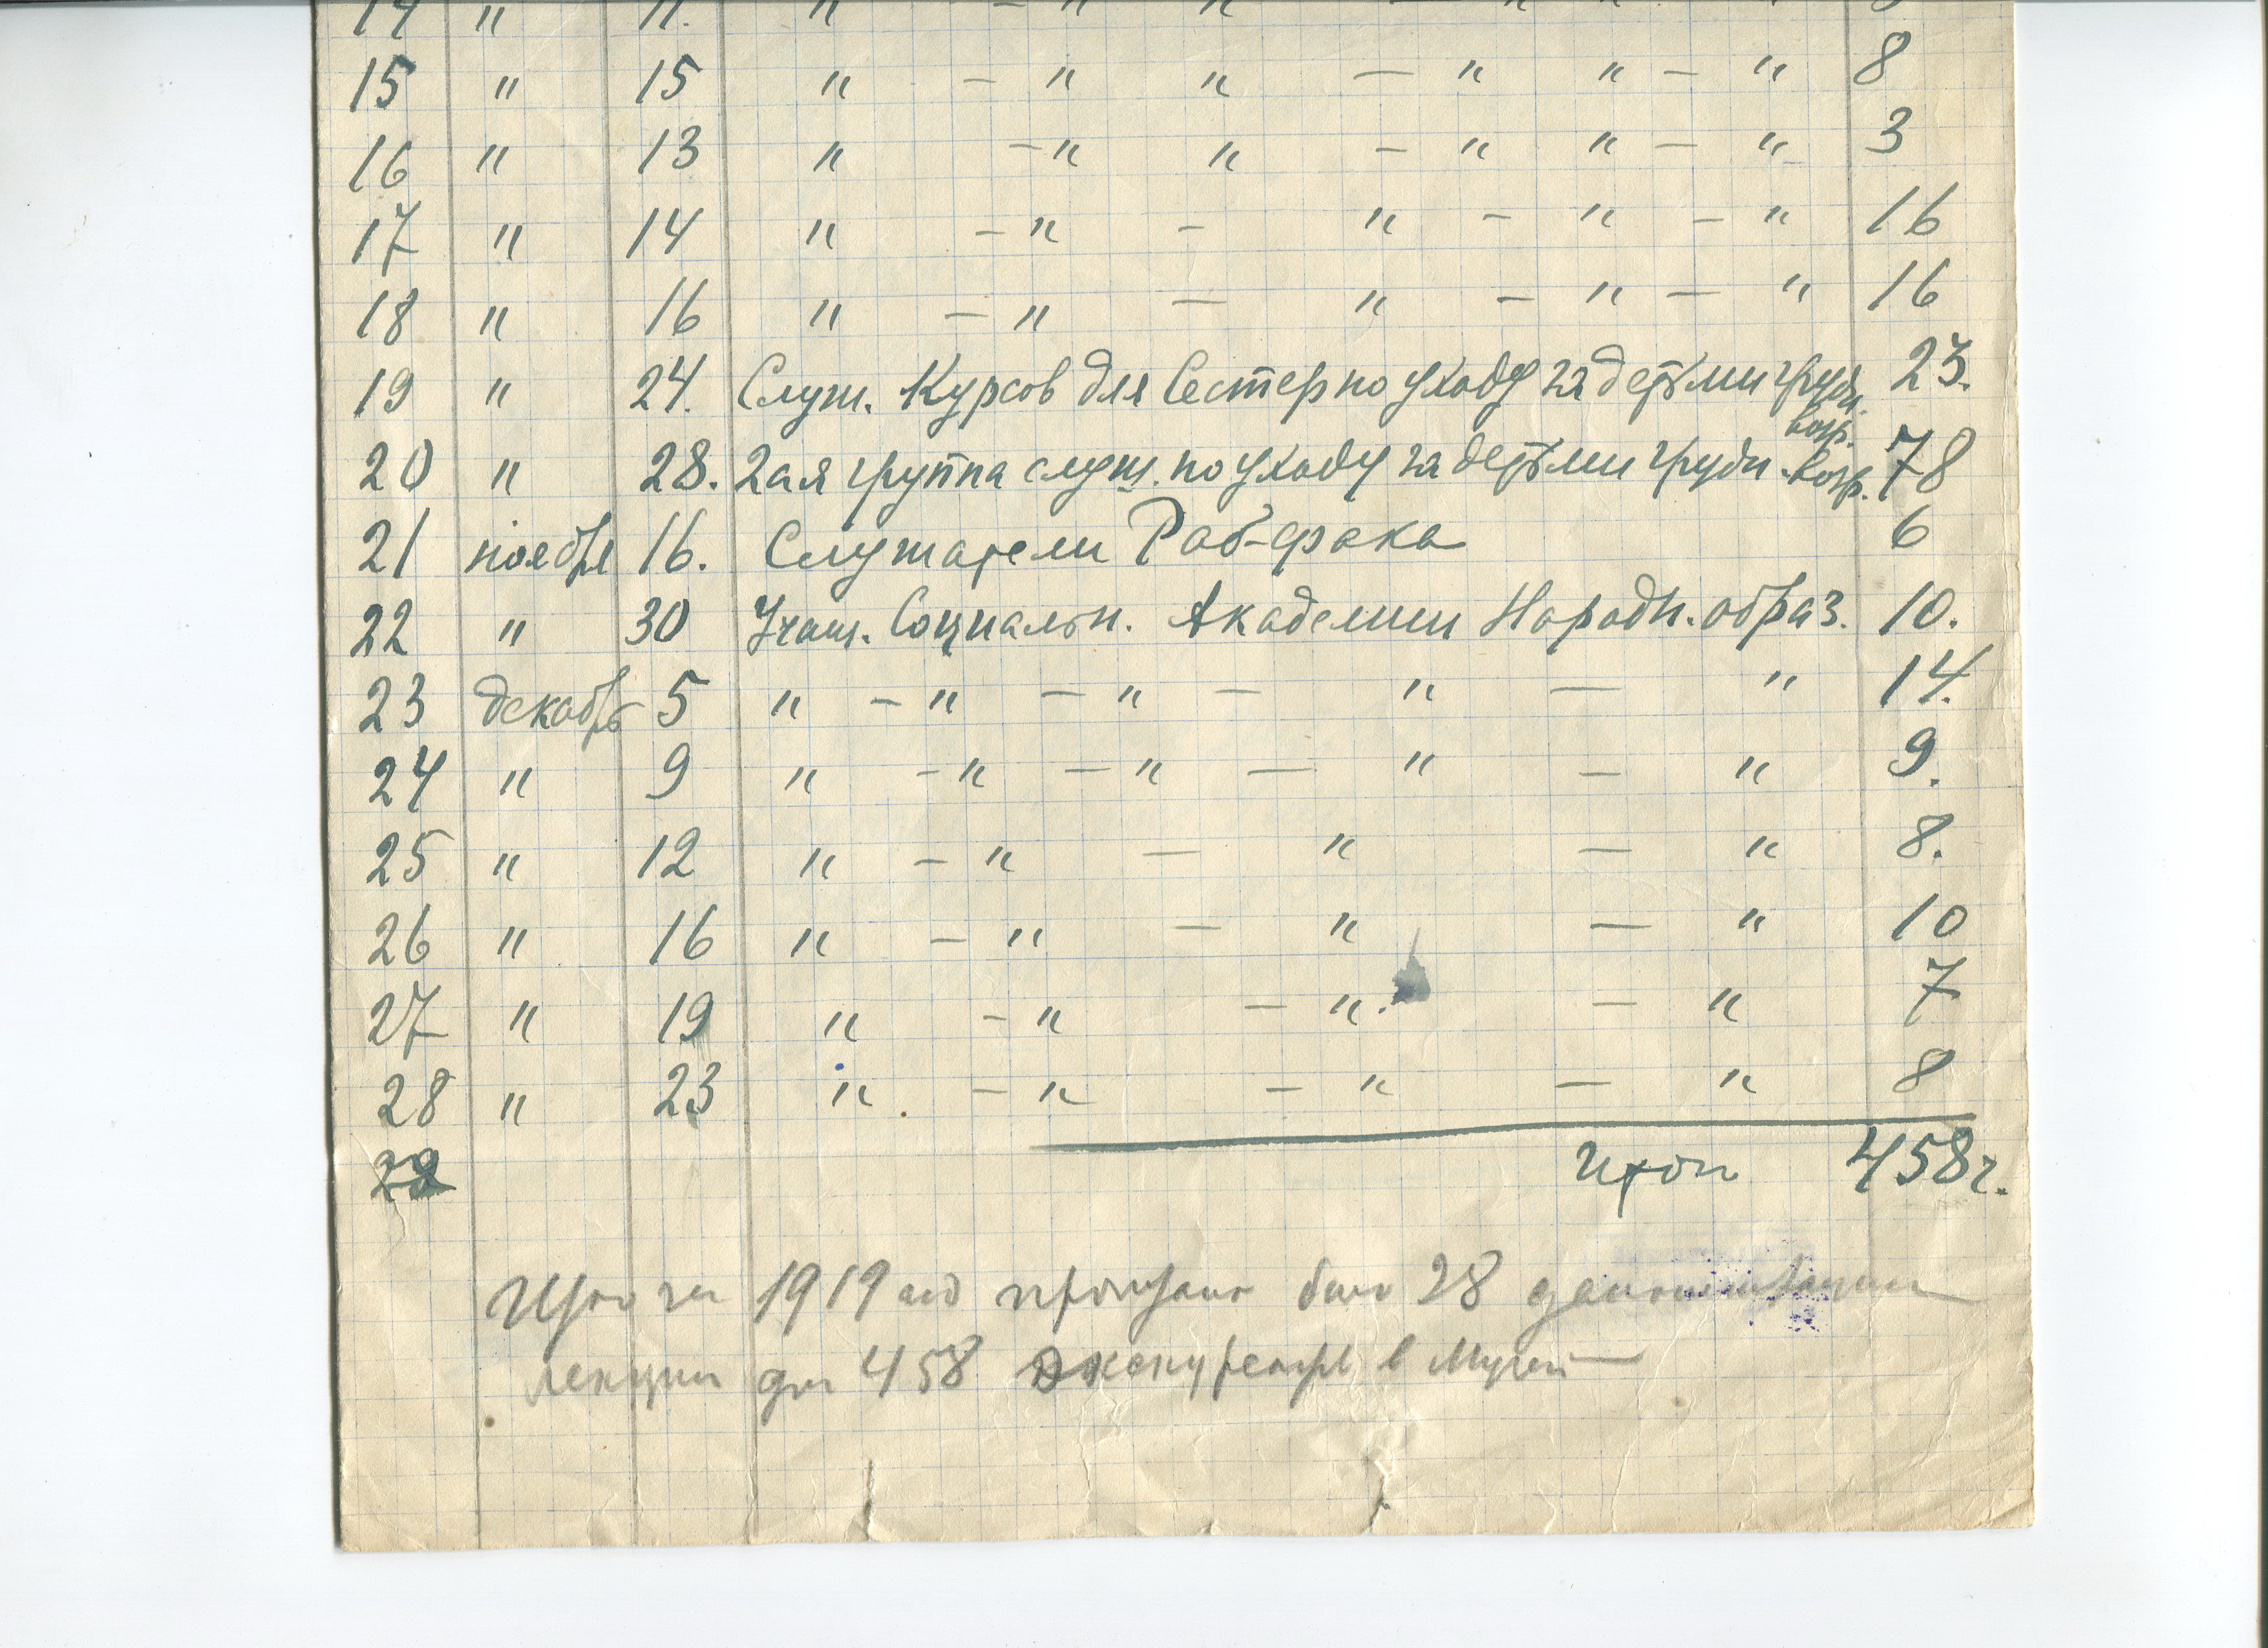 14 " 11. " — " " — " " — "
15 " 15 " — " " — " " — " 8
16 " 13 " — " " — " " — " 3
17 " 14 " — " — " — " — " 16
18 " 16 " — " — " — " — " 16
19 " 24. Слуш. Курсов для Сестер по уходу за детьми грудн. возр. 23.
20 " 28. 2ая группа слуш. по уходу за детьми грудн. возр. 78
21 ноября 16. Слушатели Раб-фака 6
22 " 30 Учащ. Социальн. Академии Народн. образ. 10.
23 декабрь 5 " — " — " — " — " 14.
24 " 9 " — " — " — " — " 9.
25 " 12 " — " — " — " 8.
26 " 16 " — " — " — " 10
27 " 19 " — " — " — " 7
28 " 23 " — " — " — " 8
Итог 458 ч.
Итого за 1919 год было 28
лекции для 458 экскурсантов в Музей